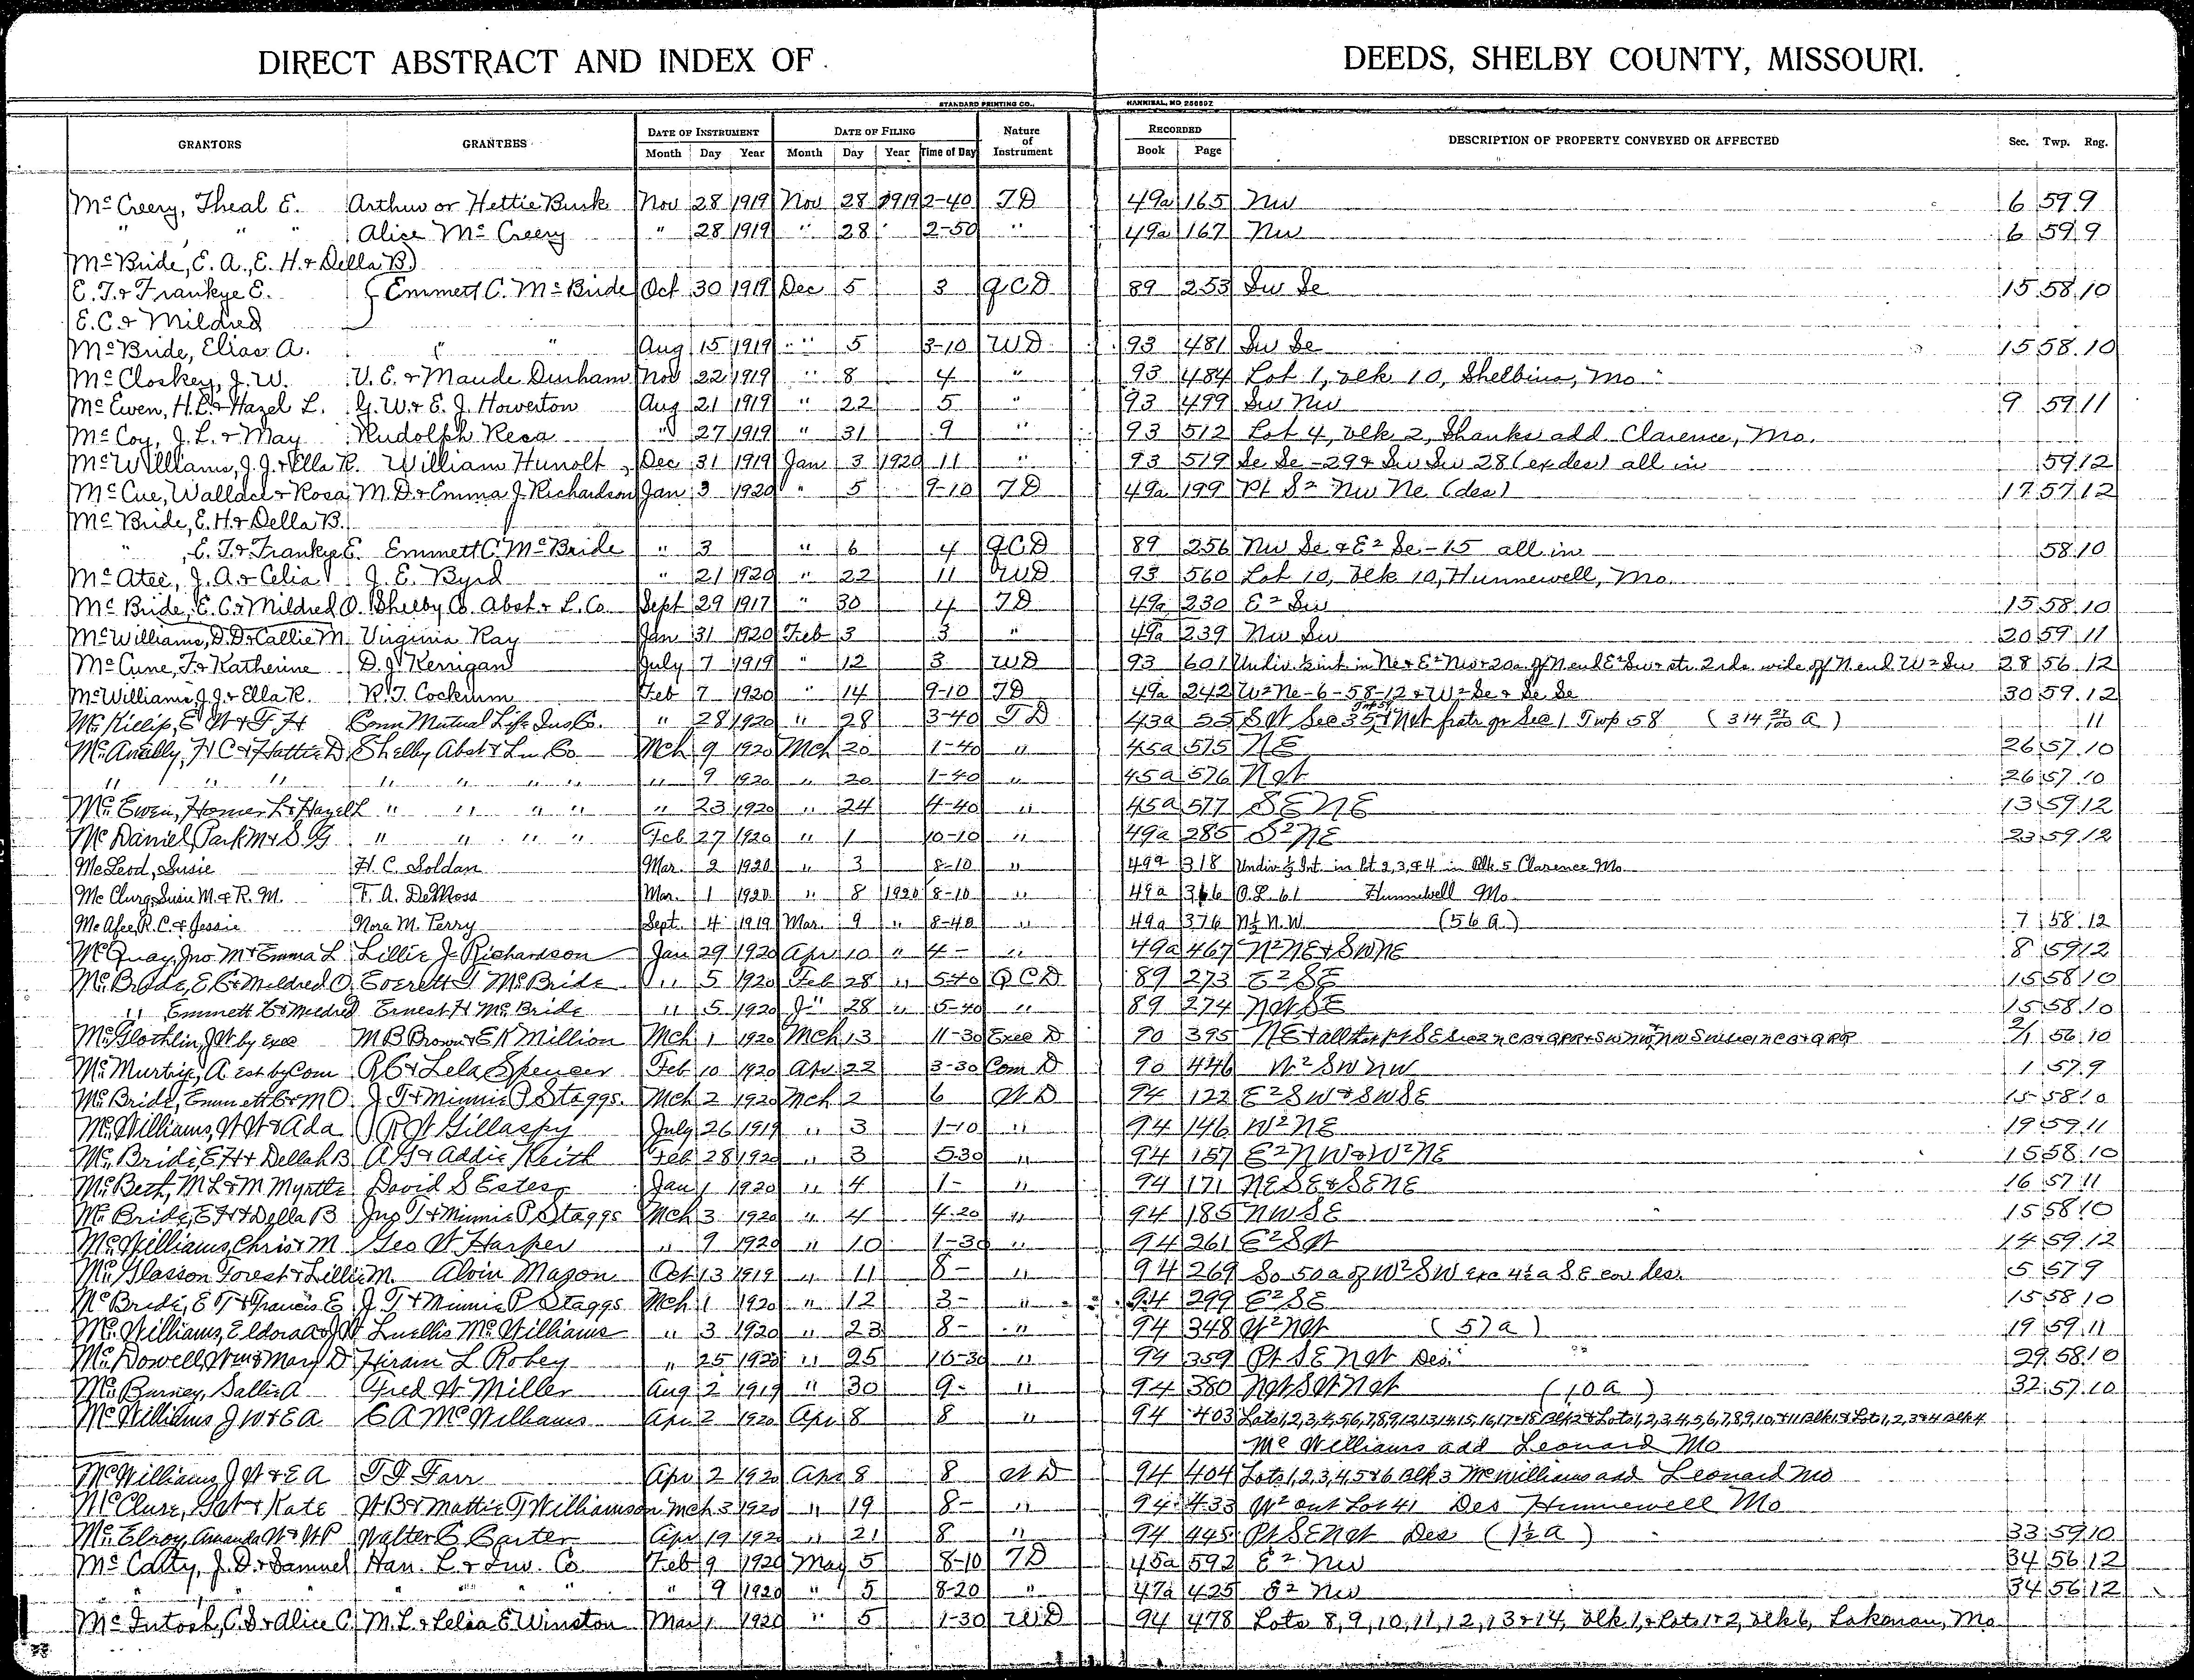 DIRECT ABSTRACT AND INDEX OF DEEDS, SHELBY COUNTY, MISSOURI.
STANDARD PRINTING CO., HANNIBAL, MO 256892
GRANTORS GRANTEES DATE OF INSTRUMENT DATE OF FILING Nature of Instrument RECORDED DESCRIPTION OF PROPERTY CONVEYED OR AFFECTED Sec. Twp. Rng.
Month Day Year Month Day Year Time of Day Book Page
McCreery, Theal E. Arthur or Hettie Busk Nov 28 1919 Nov 28 1919 2-40 TD 49a 165 Nw 6 59 9
" " " Alice McCreery " 28 1919 " 28 " 2-50 " 49a 167 Nw 6 59 9
McBride, E. A., E. H. & Della B.
E. T. & Frankye E. Emmett C. McBride Oct 30 1919 Dec 5 3 QCD 89 253 Sw Se 15 58 10
E. C. & Mildred
McBride, Elias A. " " Aug 15 1919 " 5 3-10 WD 93 481 Sw Se 15 58 10
McCloskey, J. W. V. E. & Maude Durham Nov 22 1919 " 8 4 " 93 484 Lot 1, blk 10, Shelbina, Mo
McEwen, H. L. & Hazel L. G. W. & E. J. Howerton Aug 21 1919 " 22 5 " 93 499 Sw Nw 9 59 11
McCoy, J. L. & May Rudolph Resa " 27 1919 " 31 9 " 93 512 Lot 4, blk 2, Shanks add. Clarence, Mo.
McWilliams, J. J. & Ella R. William Hunolt Dec 31 1919 Jan 3 1920 11 " 93 519 Se Se - 29 & Sw Sw 28 (ex des) all in 59 12
McCue, Wallace & Rosa M. D. & Emma J. Richardson Jan 3 1920 " 5 9-10 TD 49a 199 Pt S2 Nw Ne (des) 17 57 12
McBride, E. H. & Della B.
" , E. T. & Frankye E. Emmett C. McBride " 3 " 6 4 QCD 89 256 Nw Se & E2 Se - 15 all in 58 10
McAtee, J. A. & Celia J. E. Byrd " 21 1920 " 22 11 WD 93 560 Lot 10, blk 10, Hunnewell, Mo.
McBride, E. C. & Mildred O. Shelby Co. Abst. & L. Co. Sept 29 1917 " 30 4 TD 49a 230 E2 Sw 15 58 10
McWilliams, D. D. & Callie M. Virginia Ray Jan 31 1920 Feb 3 3 " 49a 239 Nw Sw 20 59 11
McCune, F. & Katherine D. J. Kerrigan July 7 1919 " 12 3 WD 93 601 Undiv. ½ int in Ne & E2 Nw & 20a off N end E2 Sw & str. 2 rds. wide off N end W2 Sw 28 56 12
McWilliams, J. J. & Ella R. R. T. Cockrum Feb 7 1920 " 14 9-10 TD 49a 242 W2 Ne - 6 - 58 - 12 & W2 Se & Se Se 30 59 12
McKillip, E W & G H Conn Mutual Life Ins Co. " 28 1920 " 28 3-40 TD 43a 55 S W Sec 35 Twp 59 & NW frac qr Sec 1 Twp 58 (314 27/100 A) 11
McAnally, H C & Hattie D Shelby Abst & Ln Co Mch 9 1920 Mch 20 1-40 " 45a 575 NE 26 57 10
" " " " " " " " 9 1920 " 20 1-40 " 45a 576 NW 26 57 10
McEwen, Homer L & Hazel L " " " " " 23 1920 " 24 4-40 " 45a 577 SENE 13 59 12
McDaniel, Park M & S. G " " " " Feb 27 1920 " 1 10-10 " 49a 285 S2NE 23 59 12
McLeod, Susie H. C. Soldan Mar. 2 1920 " 3 8-10 " 49a 318 Undiv ⅓ Int. in lt 2, 3, & 4 in Blk 5 Clarence Mo
McClurg, Susie M. & R. M. F. A. DeMoss Mar. 1 1920 " 8 1920 8-10 " 49a 366 O.L. 61 Hunnewell Mo
McAfee, R. C. & Jessie Nora M. Perry Sept. 4 1919 Mar. 9 " 8-40 " 49a 376 N½ N.W (56 A.) 7 58 12
McQuay, Jno M & Emma L Lillie J Richardson Jan 29 1920 Apr 10 " 4- " 49a 467 N2NE & SWNE 8 59 12
McBride, E C & Mildred O Everett T McBride " 5 1920 Feb 28 " 5-40 QCD 89 273 E2SE 15 58 10
" Emmett C & Mildred Ernest H McBride " 5 1920 " 28 " 5-40 " 89 274 NWSE 15 58 10
McGlothlin, J W by exec M B Brown & E K Million Mch 1 1920 Mch 13 11-30 Exec D 90 395 2/1 56 10
McMurtrie, A est by Com R C & Lela Spencer Feb 10 1920 Apr 22 3-30 Com D 90 446 W2SWNW 1 57 9
McBride, Emmett C & M O J T & Minnie P Staggs Mch 2 1920 Mch 2 6 WD 94 122 E2SW & SWSE 15 58 10
McWilliams, W W & Ada R W Gillaspy July 26 1919 " 3 1-10 " 94 146 W2NE 19 59 11
McBride, E H & Dellah B A G & Addie Keith Feb 28 1920 " 3 5-30 " 94 157 E2NW & W2NE 15 58 10
McBeth, M L & M Myrtle David S Estes Jan 1 1920 " 4 1- " 94 171 NESE & SENE 16 57 11
McBride, E H & Della B Jno T & Minnie P Staggs Mch 3 1920 " 4 4-20 " 94 185 NWSE 15 58 10
McWilliams, Chris & M Geo W Harper " 9 1920 " 10 1-30 " 94 261 E2SW 14 59 12
McGlasson Forest & Lillie M. Alvin Mason Oct 13 1919 " 11 8- " 94 269 So 50a of W2SW exc 4½a SE cor des. 5 57 9
McBride, E T & Francis E J. T & Minnie P Staggs Mch 1 1920 " 12 3- " 94 299 E2SE 15 58 10
McWilliams, Eldora & J W Luellis McWilliams " 3 1920 " 23 8- " 94 348 W2NW (57a) 19 59 11
McDowell, Wm & Mary D Hiram L Robey " 25 1920 " 25 10-30 " 94 359 Pt SENW Des. 29 58 10
McBurney, Sallie A Fred W Miller Aug 2 1919 " 30 9- " 94 380 NWSWNW (10a) 32 57 10
McWilliams J W & E A C A McWilliams Apr 2 1920 Apr 8 8 " 94 403 Lots 1,2,3,4,5,6,7,8,9,12,13,14,15,16,17 & 18 Blk 2 & Lots 1,2,3,4,5,6,7,8,9,10, & 11 Blk 1 & Lots 1, 2, 3 & 4 Blk 4
McWilliams add Leonard Mo
McWilliams J W & E A T F Farr Apr 2 1920 Apr 8 8 WD 94 404 Lots 1,2,3,4,5 & 6 Blk 3 McWilliams add Leonard Mo
McClure, Geo & Kate W B & Mattie G Williamson Mch 3 1920 " 19 8- " 94 433 W2 out Lot 41 Des Hunnewell Mo
McElroy, Amanda W & W P Walter C Carter Apr 19 1920 " 21 8 " 94 445 Pt SENW Des (1½ a) 33 59 10
McCarty, J. D. & Samuel Han. L. & Inv. Co Feb 9 1920 May 5 8-10 TD 45a 592 E2 Nw 34 56 12
" " " " " " 9 1920 " 5 8-20 " 47a 425 E2 Nw 34 56 12
McIntosh, C. S. & Alice C. M. L. & Lelia E Winston Mar 1 1920 " 5 1-30 WD 94 478 Lots 8, 9, 10, 11, 12, 13 & 14, blk 1, & Lots 1 & 2, blk 6, Lakenan, Mo